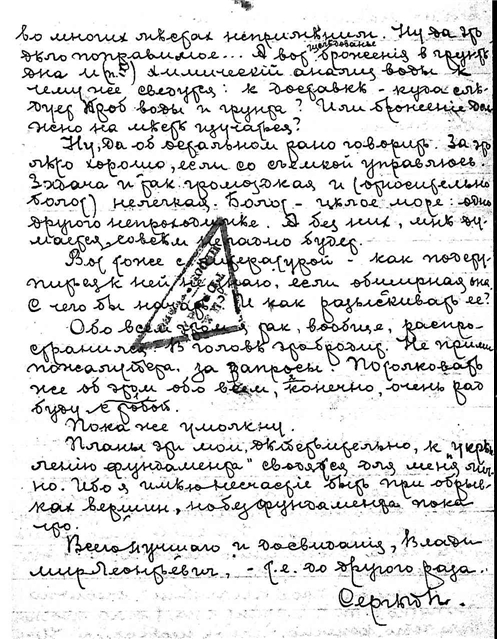 во многих мѣстах неприменим. Ну да эр
дѣло поправимое... А вот исследованье брожения в грунте
дна и (т.п.) химическій анализ воды к
чему же сведутся: к доставкѣ - куда слѣ-
дует проб воды и грунта? Или брожение дол
жно на мѣстѣ изучаться?
Ну, да об остальном рано говорить. За это
лѣто хорошо, если со съемкой управлюсь.
Задача и так громоздкая и (относительно
болот) нелегкая. Болот - цѣлое море: одно
другого непроходимѣе. А без них, мнѣ ду-
мается, совсѣм неладно будет.
Вот тоже с литературой - как подсту-
питься к ней не знаю, если обширная она.
С чего бы начать? И как разыскивать ее?
Обо всем этом я так, вообще, распро-
странился. В головѣ забродило. Не прими
пожалуйста, за запросы. Потолковать
же об этом обо всем, конечно, очень рад
буду с тобой.
Пока же умолкну.
Планы эти мои, дѣйствительно, к "укрѣп
лению фундамента" сводятся для меня лич-
но. Ибо я имѣю несчастіе быть при обрыв-
ках вершин, но без фундамента пока
что.
Всего лучшаго и досвиданія, Влади
мир Леонтьевич, - т.е. до другого раза..
Сергѣй К.